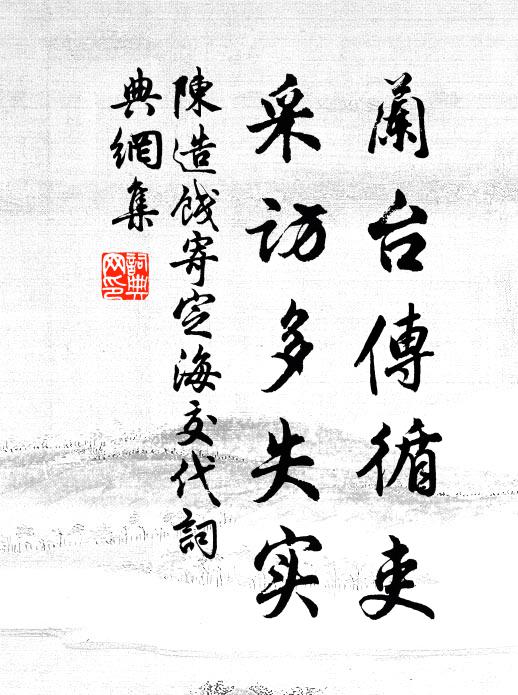 蘭台傳循吏
采访多失实
陳造餞寄定海交代詞
典網集
詞典
网印